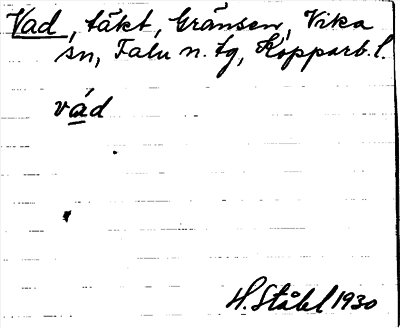 Vad, täkt, Gränsen, Vika
sn, Falu n. tg, Kopparb. l.
vád
H. Ståhl 1930